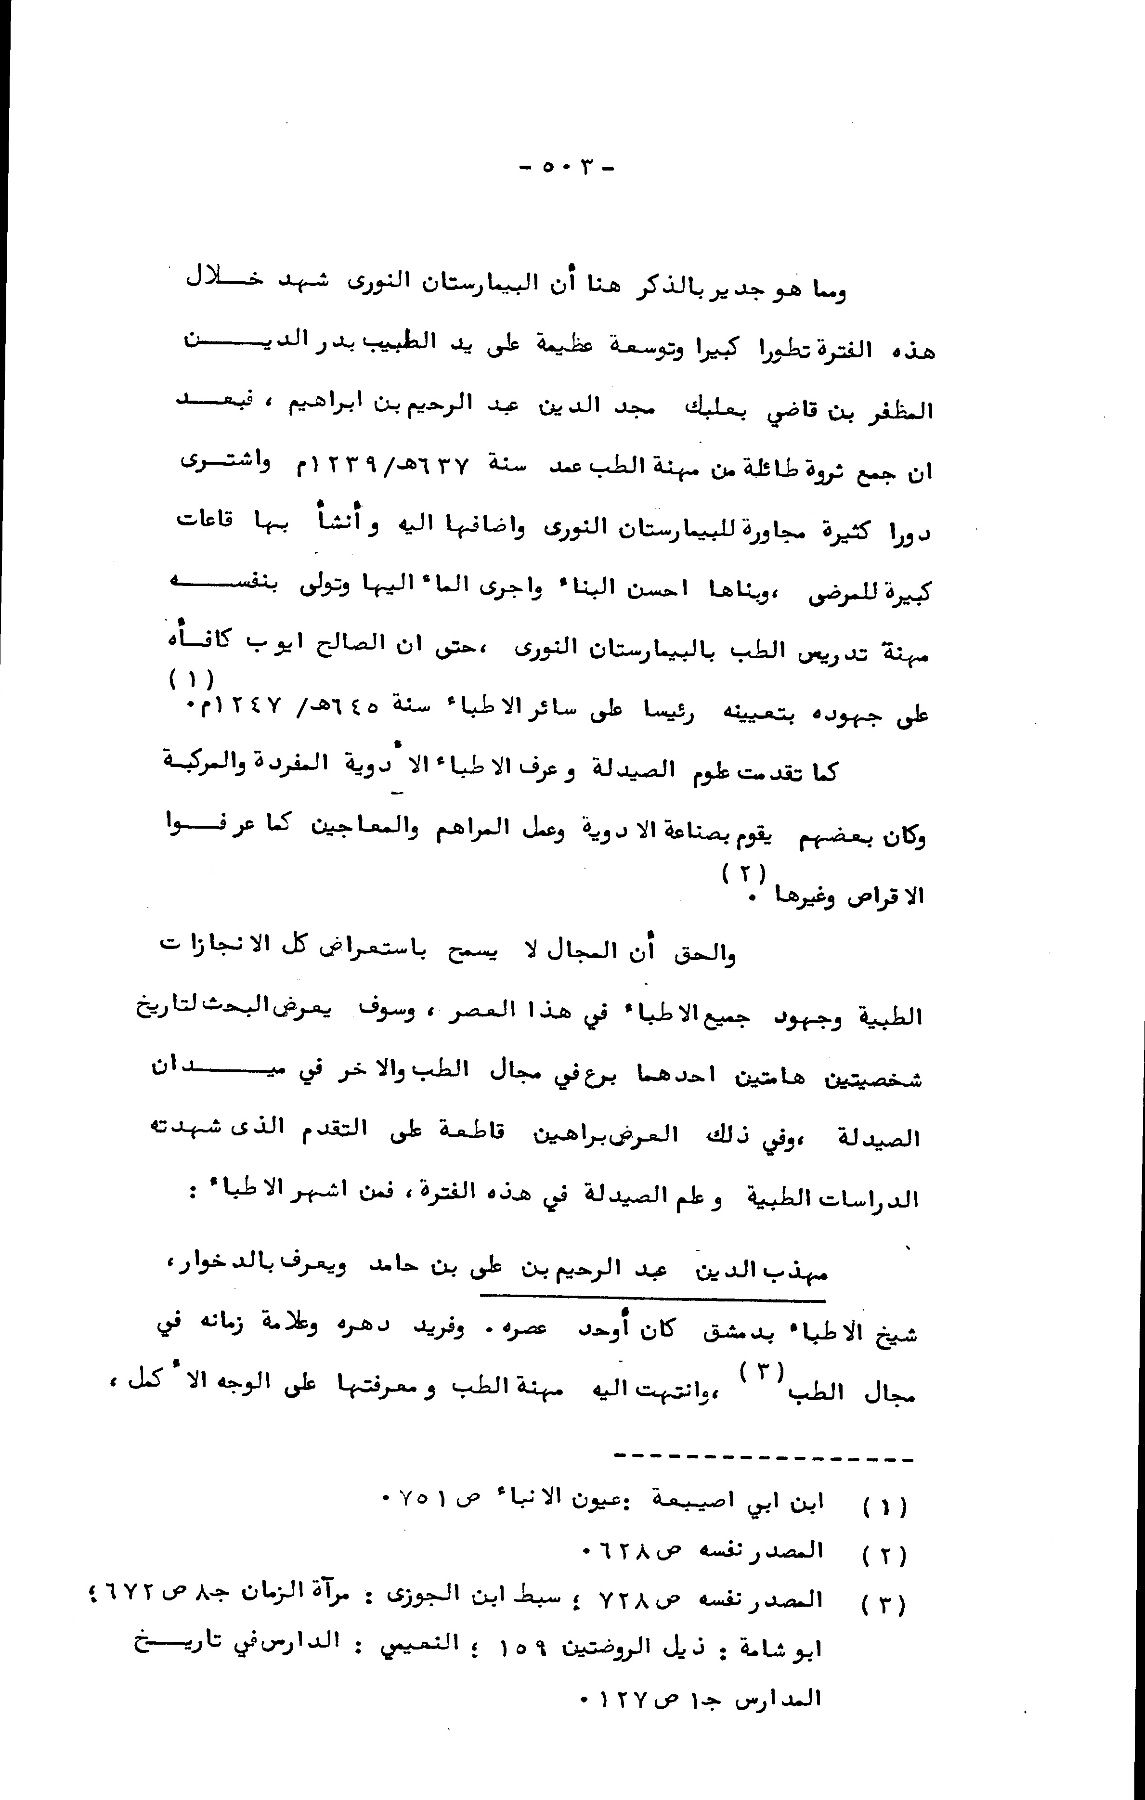 - ٥٠٣ -
ومما هو جدير بالذكر هنا أن البيمارستان النورى شهد خلال
هذه الفترة تطورا كبيرا وتوسعة عظيمة على يد الطبيب بدر الدين
المظفر بن قاضي بعلبك مجد الدين عبد الرحيم بن ابراهيم ، فبعد
ان جمع ثروة طائلة من مهنة الطب عمد سنة ٦٣٧هـ/١٢٣٩م واشترى
دورا كثيرة مجاورة للبيمارستان النورى واضافها اليه وأنشأ بها قاعات
كبيرة للمرضى ،وبناها احسن البناء واجرى الماء اليها وتولى بنفسه
مهنة تدريس الطب بالبيمارستان النورى ،حتى ان الصالح ايوب كافأه
على جهوده بتعيينه رئيسا على سائر الاطباء سنة ٦٤٥هـ/ ١٢٤٧م. (١)
كما تقدمت علوم الصيدلة وعرف الاطباء الأدوية المفردة والمركبة
وكان بعضهم يقوم بصناعة الادوية وعمل المراهم والمعاجين كما عرفوا
الاقراص وغيرها (٢).
والحق أن المجال لا يسمح باستعراض كل الانجازات
الطبية وجهود جميع الاطباء في هذا العصر ، وسوف يعرض البحث لتاريخ
شخصيتين هامتين احدهما برع في مجال الطب والاخر في ميدان
الصيدلة ،وفي ذلك العرض براهين قاطعة على التقدم الذى شهدته
الدراسات الطبية وعلم الصيدلة في هذه الفترة ، فمن اشهر الاطباء :
مهذب الدين عبد الرحيم بن على بن حامد ويعرف بالدخوار ،
شيخ الاطباء بدمشق كان أوحد عصره . وفريد دهره وعلامة زمانه في
مجال الطب (٣) ،وانتهت اليه مهنة الطب ومعرفتها على الوجه الأكمل ،
(١) ابن ابي اصيبعة :عيون الانباء ص ٧٥١ .
(٢) المصدر نفسه ص ٦٢٨ .
(٣) المصدر نفسه ص ٧٢٨ ؛ سبط ابن الجوزى : مرآة الزمان ج٨ ص ٦٧٢ ؛
ابو شامة : ذيل الروضتين ١٥٩ ؛ النعيمي : الدارس في تاريخ
المدارس ج١ ص ١٢٧ .